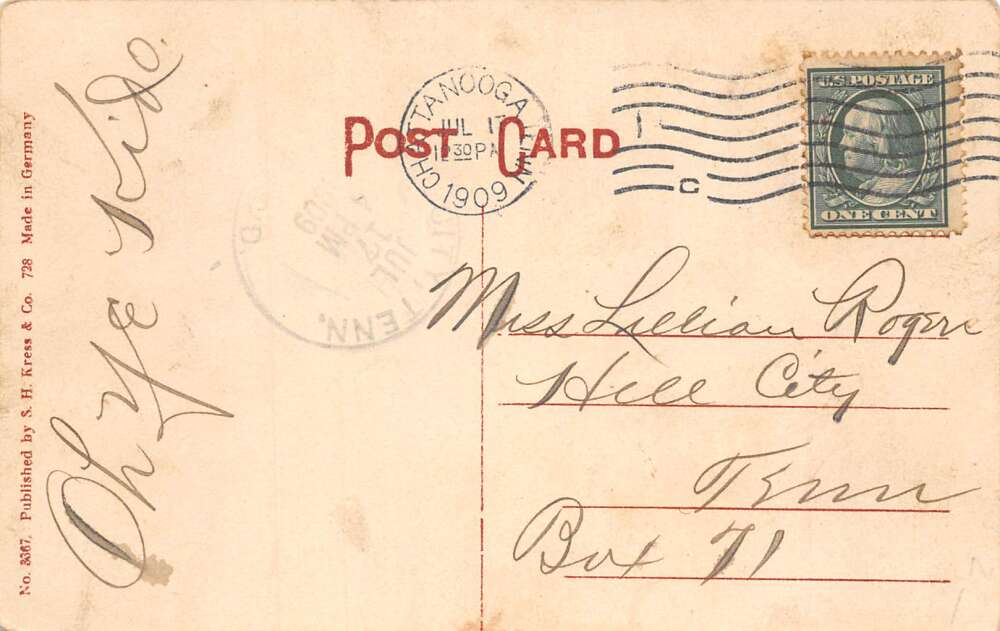 No. 3367. Published by S. H. Kress & Co. 728 Made in Germany
Oh ye Kido.
POST CARD
CHATTANOOGA TENN
JUL 17
12 30 PM
1909
C
U.S. POSTAGE
ONE CENT
TENN.
JUL
Miss Lillian Rogers
Hill City
Tenn
Box 71